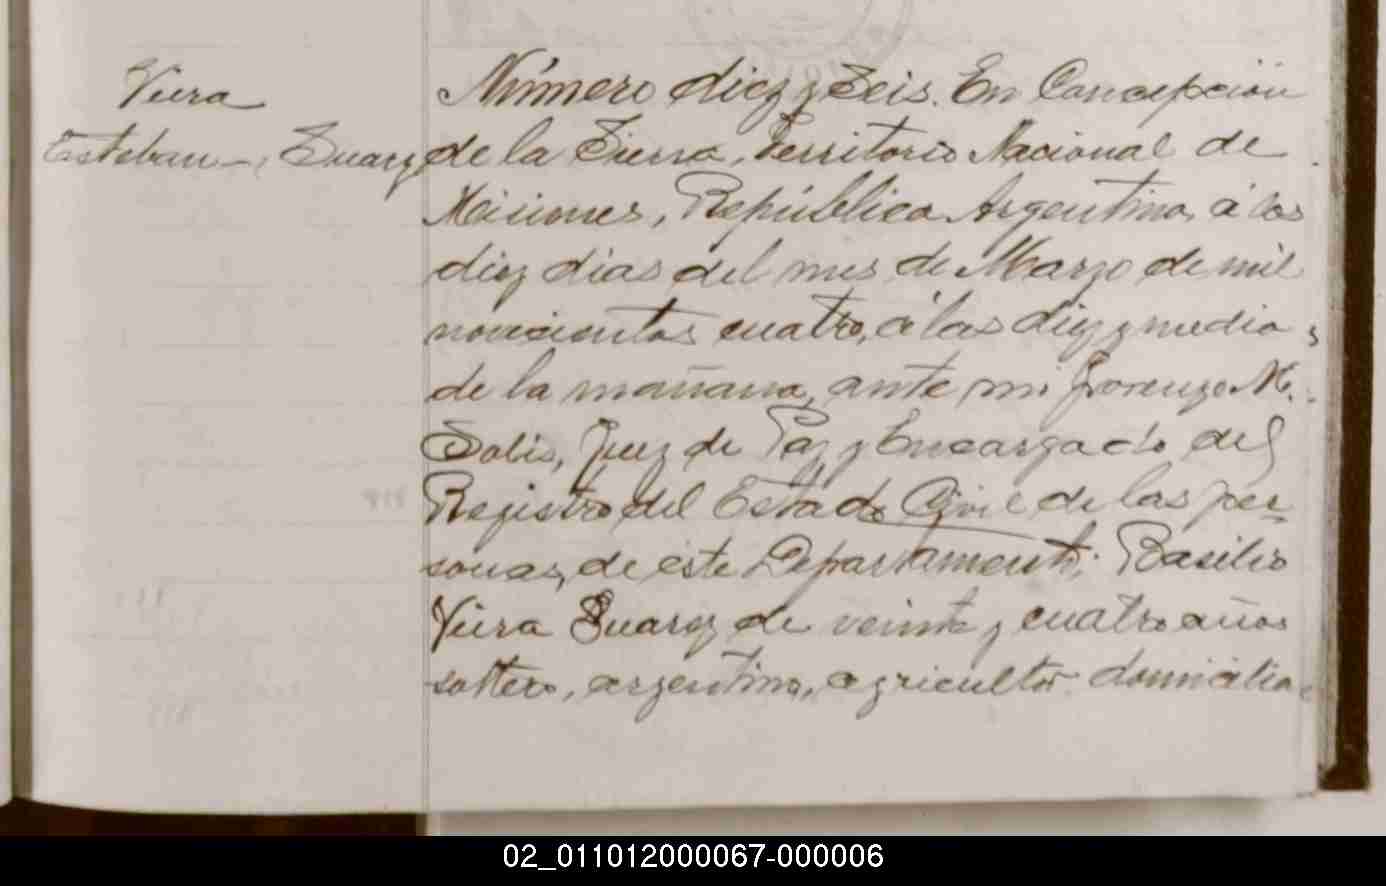 Viera
Esteban, Suarez
Número diez y Seis. En Concepcion
de la Sierra, Territorio Nacional de
Misiones, República Argentina, á los
diez dias del mes de Marzo de mil
novecientos cuatro, á las diez y media
de la mañana, ante mi Lorenzo M.
Solis, Juez de Paz y Encargado del
Registro del Estado Civil de las per-
sonas, de éste Departamento; Basilio
Viera Suarez de veinte y cuatro años
soltero, argentino, agricultor domicilia-
02_011012000067-000006